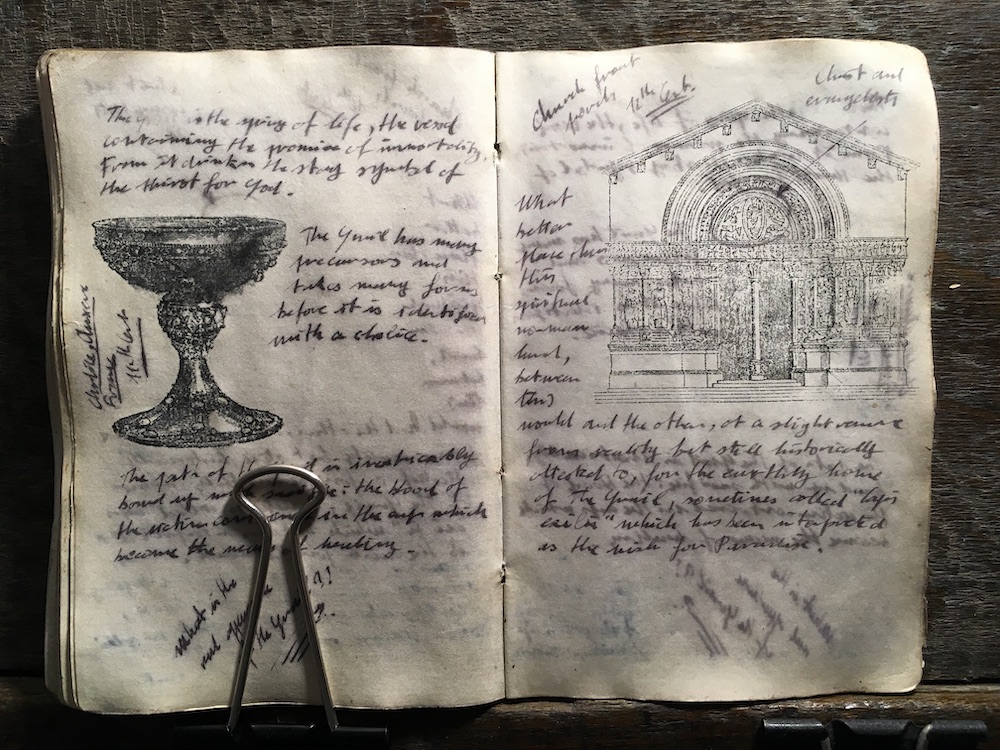 The is the spring of life, the vessel
containing the promise of immortality
From it drinks the stag symbol of
the thirst for God.
The Grail has many
precursors and
takes many forms
before it is identified
with a chalice.
Chalice,
France
The path of the is inextricably
bound up with : the blood of
the victim in the cup which
become the means of healing.
What is the
real
of the Grail ?!
Church front
porch 12th Cent.
Christ and
evangelists
What
better
place than
this
spiritual
no-man's
land,
between
this
world and the other, at a slight remove
from reality but still historically
attested to, for the earthly home
of The Grail, sometimes called "lapis
exilis" which has been interpreted
as the wish for Paradise.